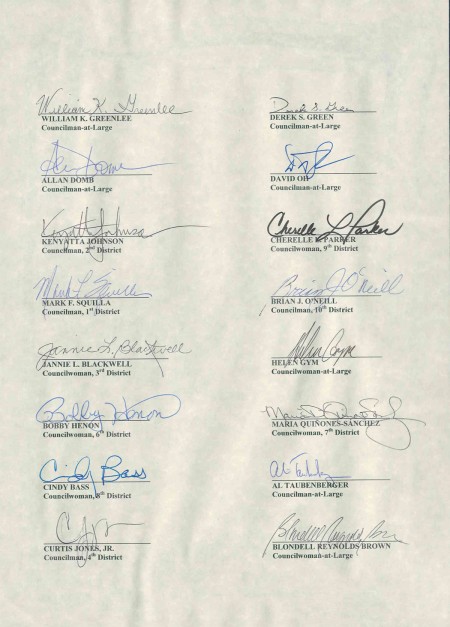 William K. Greenlee
WILLIAM K. GREENLEE
Councilman-at-Large
Derek S. Green
DEREK S. GREEN
Councilman-at-Large
ALLAN DOMB
Councilman-at-Large
DAVID OH
Councilman-at-Large
Kenyatta Johnson
KENYATTA JOHNSON
Councilman, 2nd District
Cherelle L Parker
CHERELLE L. PARKER
Councilwoman, 9th District
Mark F. Squilla
MARK F. SQUILLA
Councilman, 1st District
Brian J. O'Neill
BRIAN J. O'NEILL
Councilman, 10th District
Jannie L. Blackwell
JANNIE L. BLACKWELL
Councilwoman, 3rd District
Helen Gym
HELEN GYM
Councilwoman-at-Large
Bobby Henon
BOBBY HENON
Councilwoman, 6th District
MARIA QUIÑONES-SÁNCHEZ
Councilwoman, 7th District
Cindy Bass
CINDY BASS
Councilwoman, 8th District
AL TAUBENBERGER
Councilman-at-Large
CURTIS JONES, JR.
Councilman, 4th District
Blondell Reynolds Brown
BLONDELL REYNOLDS BROWN
Councilwoman-at-Large